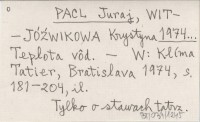 PACL Juraj, WIT-
-JÓŹWIKOWA Krystyna 1974...
Teplota vôd. — W: Klíma
Tatier, Bratislava 1974, s.
181-204, il.
Tylko o stawach tatrz.